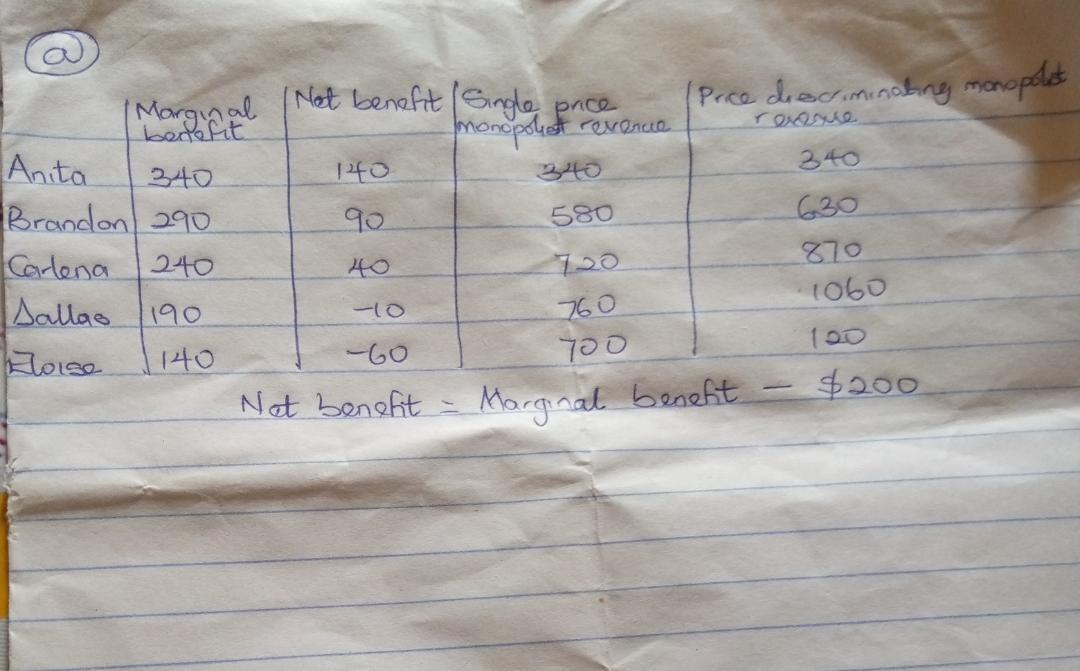 a
Marginal benefit | Net benefit | Single price monopolist revenue | Price discriminating monopolist revenue
Anita | 340 | 140 | 340 | 340
Brandon | 290 | 90 | 580 | 630
Carlena | 240 | 40 | 720 | 870
Dallas | 190 | -10 | 760 | 1060
Eloise | 140 | -60 | 700 | 120
Net benefit = Marginal benefit - $200